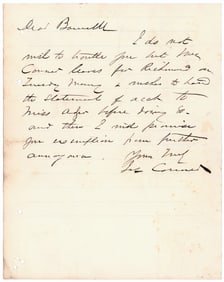 Dear Barnwell
I do not
wish to trouble you but Mrs
Conner leaves for Richmond on
Tuesday & wishes to hand
the statement of acct to
Miss before doing so
and then I will promise
you exemption from further
annoyance.
Yours truly
Conner